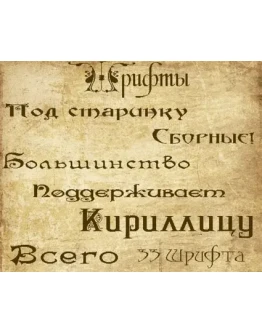 Шрифты
Под старинку
Сборные!
Большинство
Поддерживает
Кириллицу
Всего 33 Шрифта